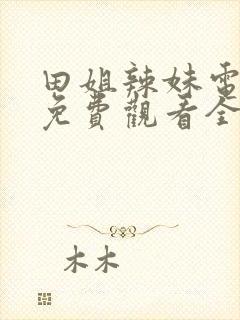 田姐辣妹電
免費觀看全
木木